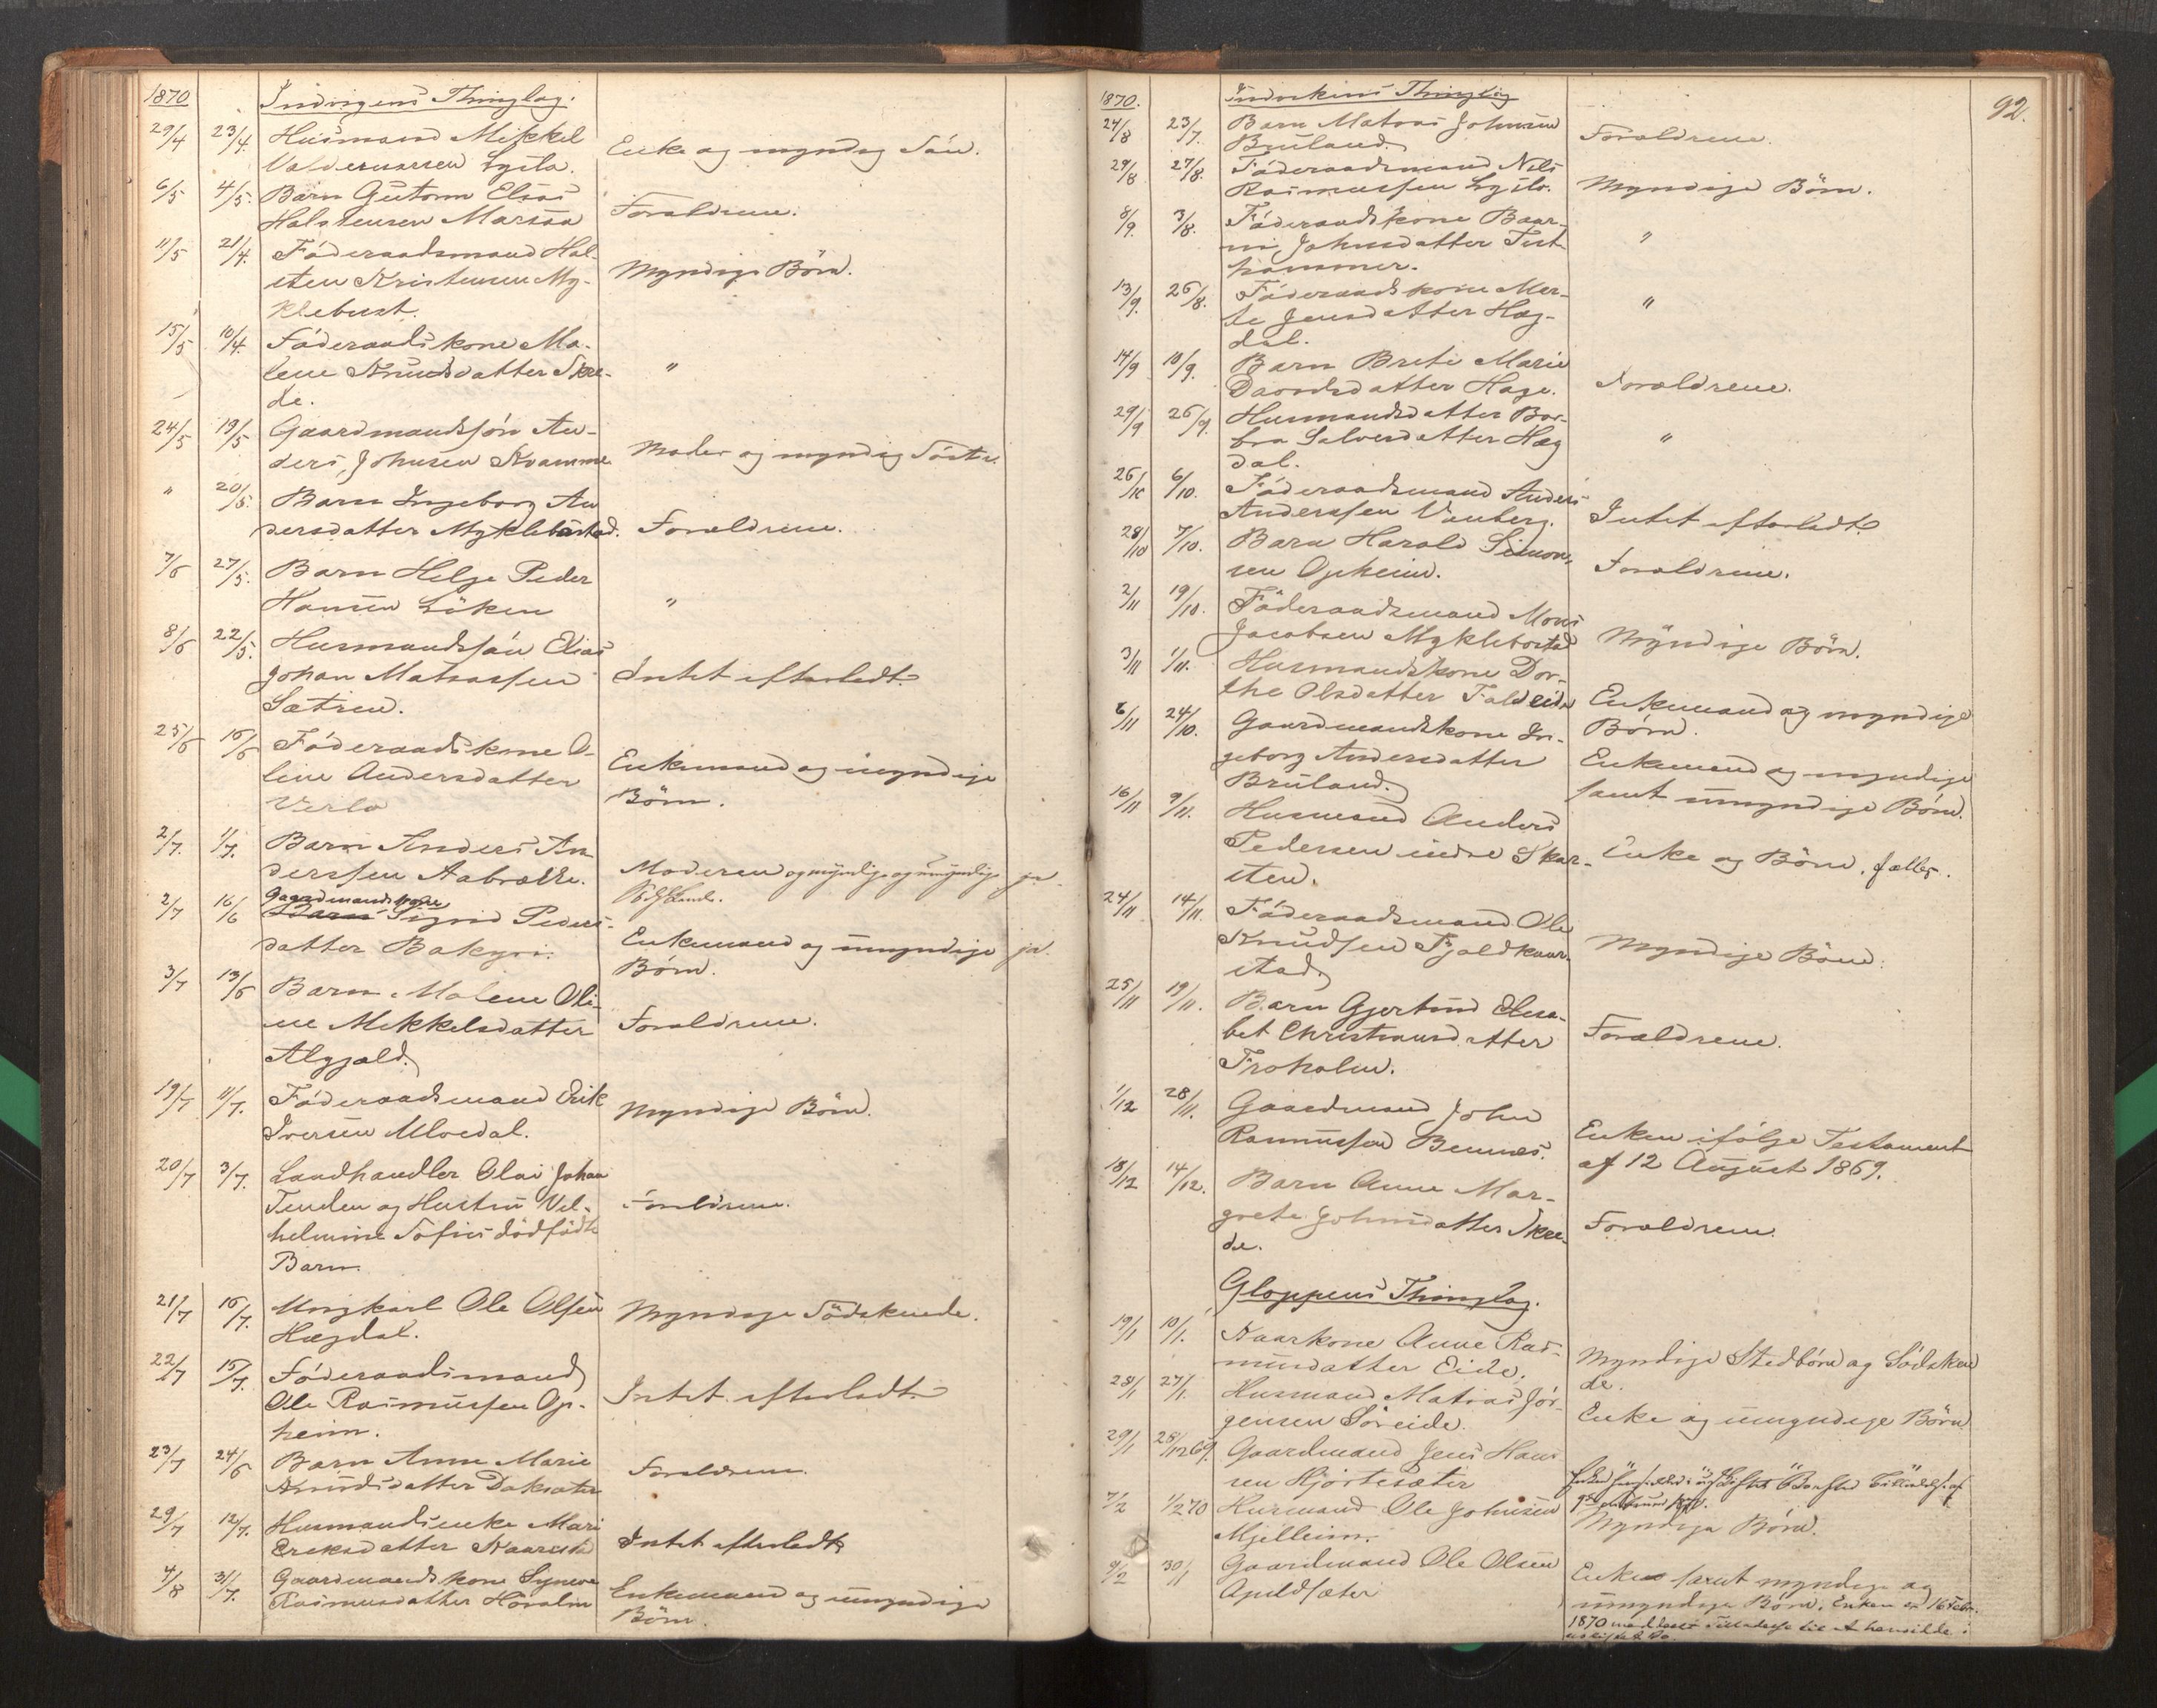 1870 Indvigens Thinglag.
29/4 23/4. Husmand Mikkel
Valdemarsen Lysta. Enke og myndig Sön.
6/5 4/5. Barn Gutorm Elias
Halstensen Marsaa Forældrene.
11/5 21/4. Föderaadsmand Hal-
sten Kristensen My- Myndige Börn.
klebust.
15/5 10/4. Föderaadskone Ma-
lene Knudsdatter Skre- "
de.
24/5 19/5 Gaardmandssön An-
ders Johnsen Kvamme Moder og myndig Söster.
" 20/5. Barn Ingeborg An
dersdatter Myklebustad. Forældrene.
7/6 27/5. Barn Helge Peder
Hansen Löken "
8/6 22/5. Husmandssön Elias
Johan Matiassen Intet efterladt.
Sætren.
25/6 15/6 Föderaadskone O-
line Andersdatter Enkemand og myndige
Verlo Börn.
2/7. 1/7. Barn Anders An
derssen Aabrække. Moderen og myndige og umyndige ja.
2/7 16/6 Gaardmandskone
Barn Sigrid Peders-
datter Bakyri. Enkemand og umyndige ja.
Börn.
3/7 13/6 Barn Malene Oli-
ne Mikkelsdatter Forældrene.
Algjeld.
19/7 11/7. Föderaadsmand Erik
Iversen Ulvedal. Myndige Börn.
20/7 3/7. Landhandler Olai Johan
Tenden og Hustru Vil-
helmine Sofies dödfödte Forældrene.
Barn.
21/7 16/7. Ungkarl Ole Olsen Myndige Södskende.
Hægdal.
22/7 15/7. Föderaadsmand
Ole Rasmussen Op- Intet efterladt.
heim.
23/7 24/6 Barn Anne Marie
Knudsdatter Doksæter Forældrene.
29/7 12/7. Husmandsenke Mari
Eriksdatter Intet efterladt
4/8 31/7. Gaardmandskone Synneve
Rasmusdatter Enkemand og umyndige
Börn.
92.
1870. Indvikens Thinglag
24/8 23/7. Barn Matias Johnsen
Bruland. Forældrene.
24/8 27/8. Föderaadsmand Nils
Rasmussen Lyslo. Myndige Börn.
8/9. 3/8. Föderaadskone Baar-
ni Johnsdatter Tist- "
hammer.
13/9. 26/8. Föderaadskone Mar-
te Jensdatter Hæg- "
dal.
14/9 10/9. Barn Brite Marie
Davidsdatter Hage. Forældrene.
29/9 26/9. Husmandsdatter Bar-
bra Salvesdatter Hæg "
dal.
26/10 6/10. Föderaadsmand Anders
Anderssen Vanberg. Intet efterladt
28/10 7/10. Barn Harald Simon-
sen Opheim. Forældrene.
2/11 19/10. Föderaadsmand Mons
Jacobsen Myklebostad Myndige Börn.
3/11 1/11. Husmandskone Dor-
the Olsdatter Faleide Enkemand og myndige
Börn.
6/11 24/10. Gaardmandskone In-
geborg Andersdatter Enkemand og myndige
Bruland. samt umyndige Börn.
16/11 9/11. Husmand Anders
Pedersen indre Skar- Enke og Börn, fælles.
sten.
24/11 14/11. Föderaadsmand Ole
Knudsen Fjeldkaar- Myndige Börn.
stad
25/11 19/11. Barn Gjertrud Elisa-
bet Christiansdatter Forældrene.
Froholm.
1/12 28/11. Gaardmand John
Rasmussen Bennes. Enken ifölge Testament
af 12 August 1869.
18/12 14/12. Barn Anne Mar-
grete Johnsdatter Skre- Forældrene.
de.
Gloppens Thinglag.
19/1 10/1. Kaarkone Anne Ras-
musdatter Eide. Myndige Stedbörn og Södsken
de.
28/1 27/1. Husmand Matias Jör-
gensen Söreide. Enke og umyndige Börn
29/1 28/12 69. Gaardmand Jens Han
sen Hjortesæter
7/2 1/2 70 Husmand Ole Johnsen
Mjellem. Myndige Börn.
9/2 30/1 Gaardmand Ole Olsen
Apaldsæter Enke samt myndige og
umyndige Börn. Enken er 16 Febr.
1870 meddeelt Tilladelse til at hensidde i
uskiftet Bo.